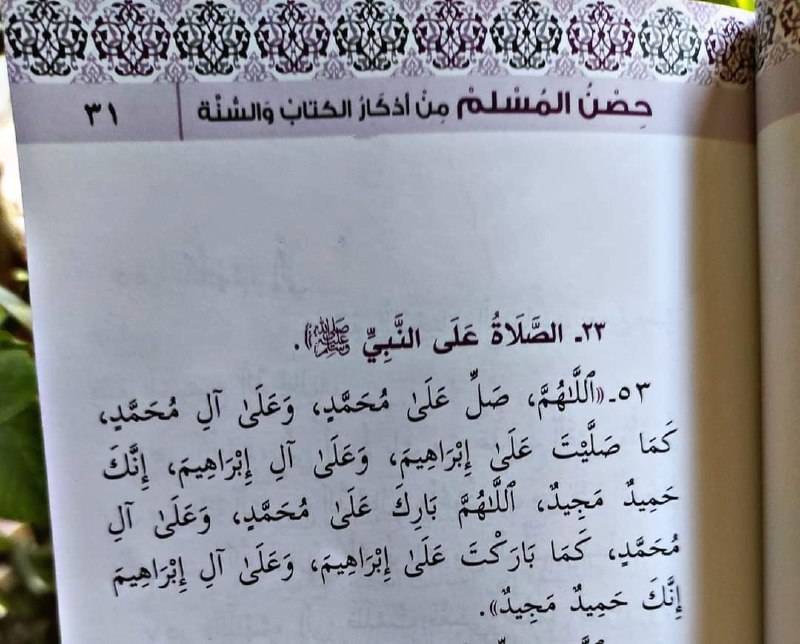 حِصْنُ المُسْلِمْ مِنْ أذكَارُ الكتابْ وَالسُّنَّة ٣١
٢٣ـ الصَّلَاةُ عَلَى النَّبِيِّ ﷺ).
٥٣ـ «اَللَّهُمَّ، صَلِّ عَلَىٰ مُحَمَّدٍ، وَعَلَىٰ آلِ مُحَمَّدٍ،
كَمَا صَلَّيْتَ عَلَىٰ إِبْرَاهِيمَ، وَعَلَىٰ آلِ إِبْرَاهِيمَ، إِنَّكَ
حَمِيدٌ مَجِيدٌ، اَللَّهُمَّ بَارِكَ عَلَىٰ مُحَمَّدٍ، وَعَلَىٰ آلِ
مُحَمَّدٍ، كَمَا بَارَكْتَ عَلَىٰ إِبْرَاهِيمَ، وَعَلَىٰ آلِ إِبْرَاهِيمَ
إِنَّكَ حَمِيدٌ مَجِيدٌ».